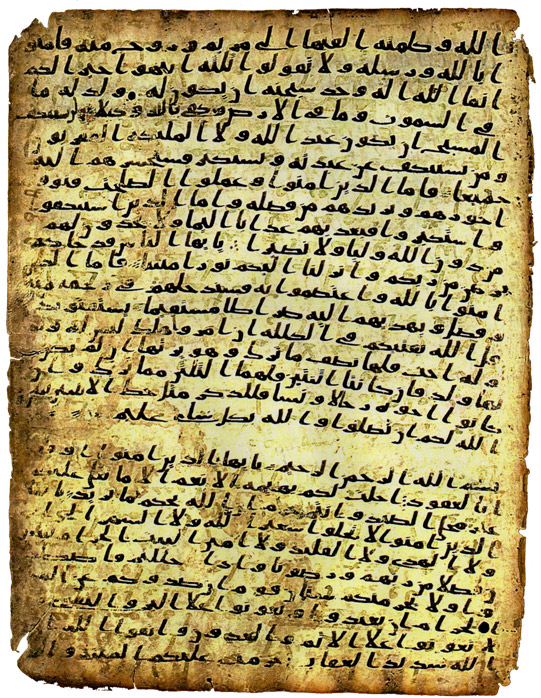 الله وكلمته القها الى مريم وروح منه فامنو
ا بالله ورسله ولا تقولوا ثلثه انتهوا خيرا لكم
انما الله اله وحد سبحنه ان يكون له ولد له ما
في السموت وما في الارض وكفى بالله وكيلا لن يستنكف
المسيح ان يكون عبدا لله ولا الملئكه المقربون
ومن يستنكف عن عبدته ويستكبر فسيحشرهم اليه
جميعا فاما الذين امنوا وعملوا الصلحت فيوفيهم
اجورهم ويزيدهم من فضله واما الذين استنكفوا
واستكبروا فيعذبهم عذابا اليما ولا يجدون لهم
من دون الله وليا ولا نصيرا يايها الناس قد جاكم
برهن من ربكم وانزلنا اليكم نورا مبينا فاما الذين
امنوا بالله واعتصموا به فسيدخلهم في رحمه منه
وفضل ويهديهم اليه صرطا مستقيما يستفتونك
قل الله يفتيكم في الكلله ان امرو هلك ليس له ولد
وله اخت فلها نصف ما ترك وهو يرثها ان لم يكن
لها ولد فان كانتا اثنتين فلهما الثلثن مما ترك وان
كانوا اخوه رجالا ونسا فللذكر مثل حظ الانثيين يبين
الله لكم ان تضلوا والله بكل شى عليم
بسم الله الرحمن الرحيم يايها الذين امنوا اوفو
ا بالعقود احلت لكم بهيمه الانعم الا ما يتلى عليكم
غير محلى الصيد وانتم حرم ان الله يحكم ما يريد يايها
الذين امنوا لا تحلوا شعئر الله ولا الشهر الحرم
ولا الهدى ولا القلئد ولا امين البيت الحرم يبتغون
فضلا من ربهم ورضونا واذا حللتم فاصطدو
ا ولا يجرمنكم شنان قوم ان صدوكم عن المسجد
الحرم ان تعتدوا وتعونوا على البر والتقوى
ولا تعونوا على الاثم والعدون واتقوا الله ان
الله شديد العقاب حرمت عليكم الميته والدم